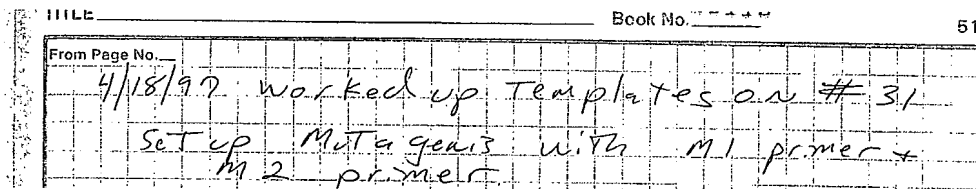 TITLE
Book No.
51
From Page No.
4/18/97 worked up Templates on # 31
SeT up MuTagenis with M1 primer +
M2 primer